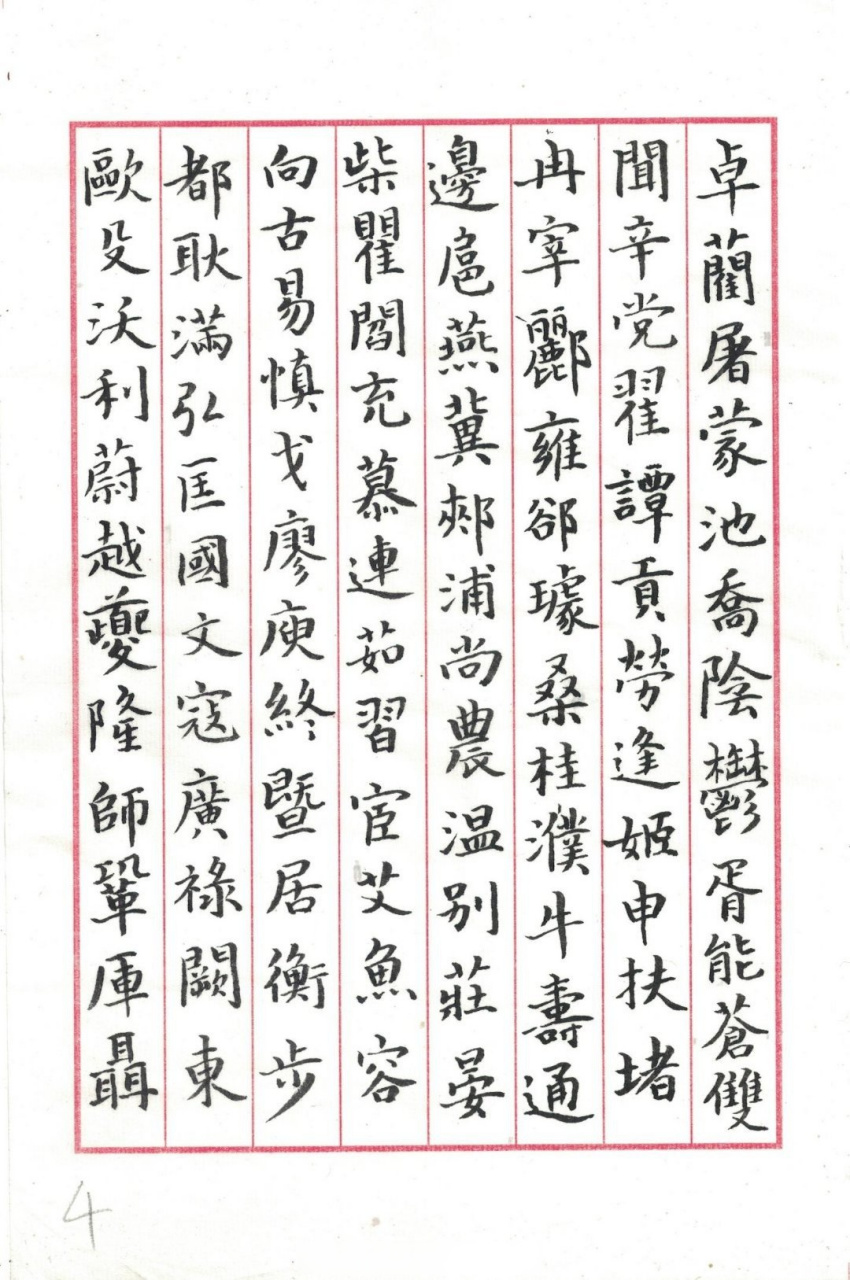 卓藺屠蒙池喬陰鬱胥能蒼雙
聞辛党翟譚貢勞逄姬申扶堵
冉宰酈雍郤璩桑桂濮牛壽通
邊扈燕冀郟浦尚農温别莊晏
柴瞿閻充慕連茹習宦艾魚容
向古易慎戈廖庾終暨居衡步
都耿滿弘匡國文寇廣祿闕東
歐殳沃利蔚越夔隆師鞏厙聶
4